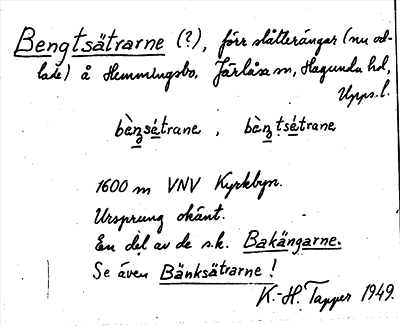 Bengtsätrarne (?), förr slåtterängar (nu od-
lade) å Hemmingsbo, Järlåsa sn, Hagunda hd,
Upps. l.
bèn̥sétrane, bèn̥tsétrane
1600 m VNV Kyrkbyn.
Ursprung okänt.
En del av de s.k. Bakängarne.
Se även Bänksätrarne!
K.-H. Tapper 1949.